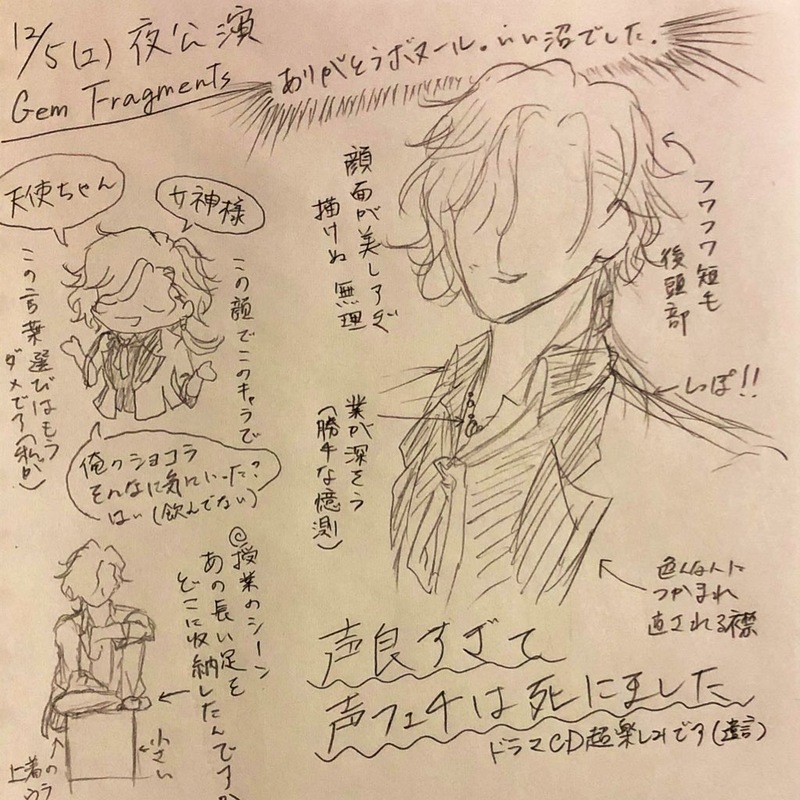 12/5(土)夜公演
Gem Fragments
ありがとうボヌール。いい沼でした。
天使ちゃん
女神様
この顔でこのキャラで
この言葉選びはもう
ダメです(私が)
俺のショコラ
そんなに気にいった?
はい(飲んでない)
顔面が美しすぎ
描けぬ 無理
フワフワ短毛
後頭部
←しっぽ!!
業が深そう
(勝手な憶測)
色んな人に
つかまれ
直される襟
@授業のシーン
あの長い足を
どこに収納したんですか
小さい
上着のウラ
声良すぎて
声フェチは死にました
ドラマCD超楽しみです(遺言)